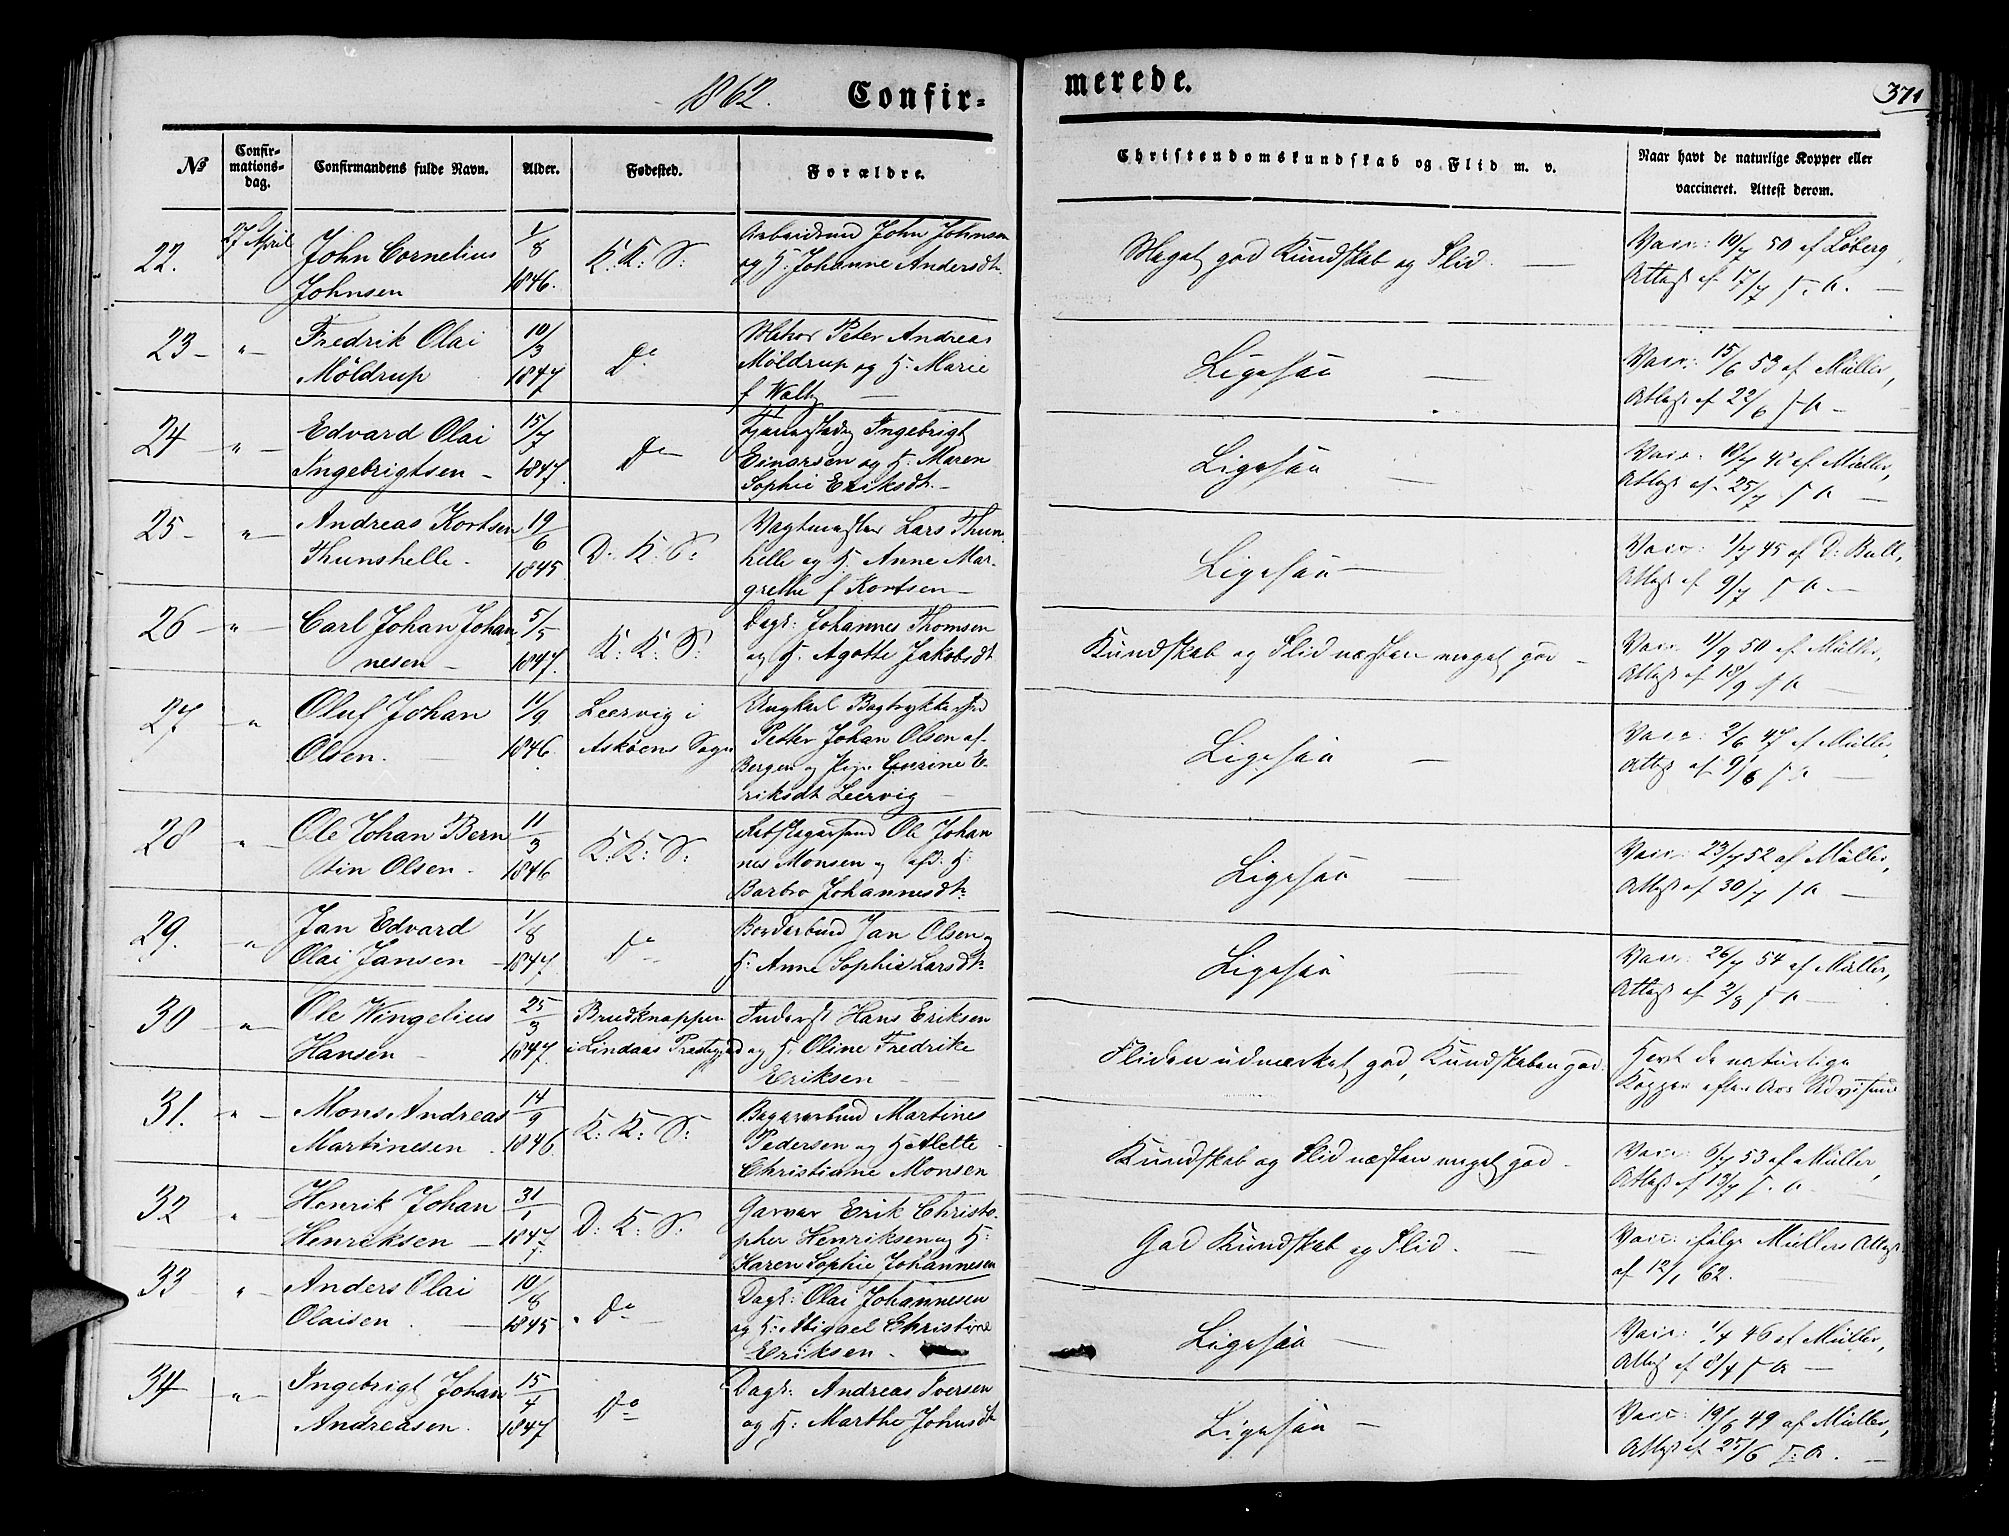 1862. Confir-
merede.
371
No
Confir-
mations-
dag.
Confirmandens fulde Navn.
Alder.
Fødested.
Forældre.
Christendomskundskab og Flid m. v.
Naar havt de naturlige Kopper eller
vaccineret. Attest derom.
22. 27 April John Cornelius Johnsen 1/8 1846. K: K: S:
John Johnsen
og H: Johanne Andersdt.
Meget god Kundskab og Flid. —
Vacc: 19/7 50 af Løberg,
Attest af 17/7 s. A. —
23 — " — Fredrik Olai Møldrup 10/3 1847 Do
Peter Andreas
Møldrup og H: Marie
f Walby —
Ligesaa —
Vacc: 15/6 53 af Müller,
Attest af 22/6 s A —
24 " — Edvard Olai Ingebrigtsen — 15/7 1847. Do —
Ingebrigt
Einarsen og H: Maren
Sophie Eriksdt. —
Ligesaa —
Vacc: 18/7 48 af Müller,
Attest af 25/7 s A —
25 — " — Andreas Kortsen Thunshelle. 19/6 1845 D. K: S:
Vagtmester Lars Thuns-
helle og H. Anne Mar-
grethe f Kortsen —
Ligesaa —
Vacc: 1/7 45 af D: Bull,
Attest af 9/7 s A. —
26 — " — Carl Johan Johan
nesen — 5/5 1847. K: K: S:
Dagk: Johannes Thomsen
og H. Agathe Jakobsdt.
Kundskab og Flid næsten meget god —
Vacc: 11/9 50 af Müller,
Attest af 18/9 s A —
27 — " Oluf Johan Olsen. — 11/9 1846. Leervig i
Askøens Sogn
Ungkarl
Petter Johan Olsen af
Bergen og Pige Gurine E-
riksdt Leervig —
Ligesaa —
Vacc: 2/6 47 af Müller,
Attest af 9/6 s A —
28 " — Ole Johan Bern
tin Olsen. 11/3 1846 K: K: S:
Ole Johan
nes Monsen og afd. H:
Barbro Johannesdt.
Ligesaa —
Vacc: 23/7 52 af Müller,
Attest af 30/7 s A —
29. " Jan Edvard
Olai Jansen — 1/8 1847. Do —
Jan Olsen og
H. Anne Sophie Larsdt.
Ligesaa —
Vacc: 26/7 54 af Müller,
Attest af 2/8 s A —
30 " — Ole Wingelius
Hansen — 25/3 1847. Brudknappen
i Lindaas Præstegjeld
Inderst Hans Eriksen
og H. Oline Fredrike
Eriksen —
Fliden udmærket god, Kundskaben god.
Havt de naturlige
Kopper efter
31. " — Mons Andreas
Martinesen. 14/9 1846. K: K: S:
Martines
Pedersen og H Alette
Christiane Monsen
Kundskab og Flid næsten meget god —
Vacc: 6/7 53 af Müller,
Attest af 13/7 s. A. —
32 " — Henrik Johan
Henriksen — 31/1 1847. D: K: S:
Garver Erik Christo-
pher Henriksen og H:
Karen Sophie Johannesen
God Kundskab og Flid. —
Vacc: ifølge Müllers Attest
af 12/1 62. —
33 — " — Anders Olai
Olaisen. — 10/8 1845. Do —
Dagk: Olai Johannesen
og H: Abigael Christine
Eriksen.
Ligesaa —
Vacc: 1/4 46 af Müller,
Attest af 8/4 s A —
34 " — Ingebrigt Johan
Andreasen. 15/4 1847 Do
Dagk: Andreas Iversen
og H: Marthe Johnsdt.
Ligesaa —
Vacc: 19/6 49 af Müller,
Attest af 25/6 s: A. —